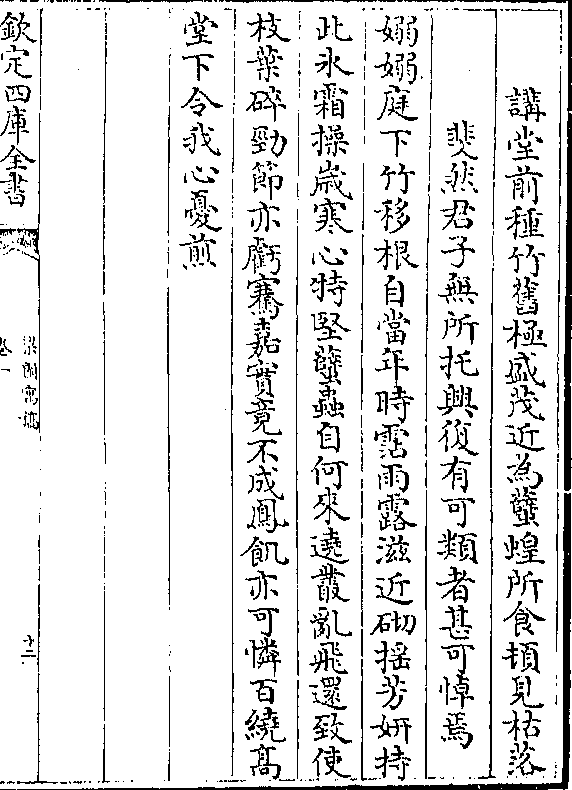 講堂前種竹舊極盛茂近為蠽蝗所食頓見枯落
斐然君子無所托興復有可類者甚可悼焉
嫋嫋庭下竹移根自當年時霑雨露滋近砌揺芳妍持
此氷霜操嵗寒心特堅蠽蟲自何來遶叢亂飛還致使
枝葉碎勁節亦虧騫嘉實竟不成鳳飢亦可憐百繞髙
堂下令我心憂煎
欽定四庫全書
卷一
十二